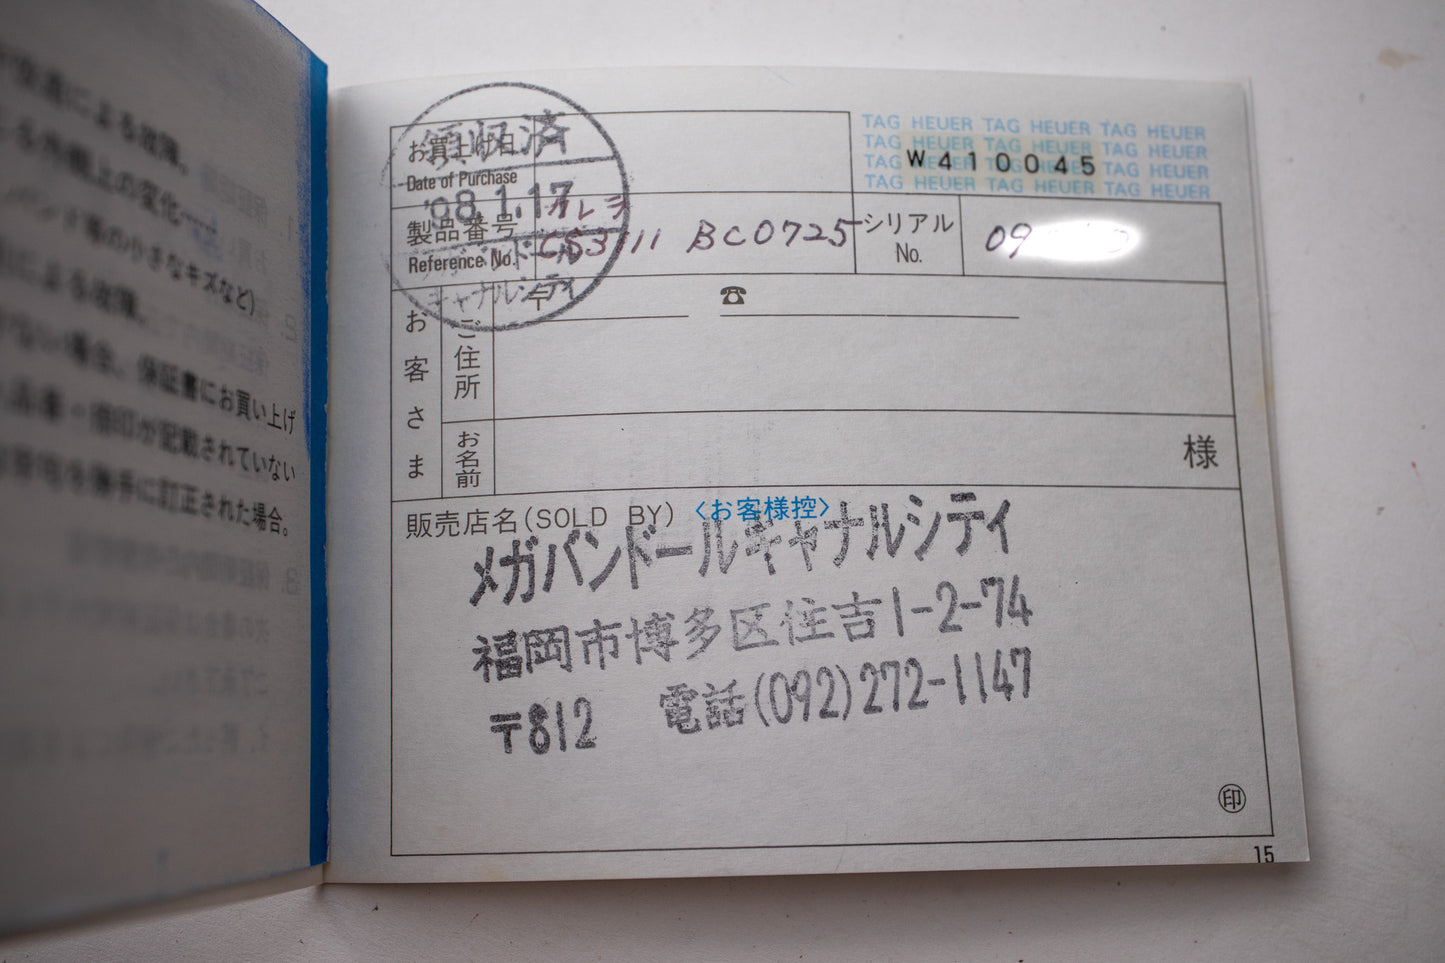 交通による故障。
る外観上の変化……
バンド等の小さなキズなど)
による故障。
ない場合、保証書にお買い上げ
品番・捺印が記載されていない
字句を勝手に訂正された場合。
領収済
お買上げ日
Date of Purchase
'98.1.17
メガバンドール
キャナルシティ
TAG HEUER TAG HEUER TAG HEUER
TAG HEUER TAG HEUER TAG HEUER
W410045
TAG HEUER TAG HEUER TAG HEUER
TAG HEUER TAG HEUER TAG HEUER
製品番号
Reference No.
カレラ
CS3111 BC0725
シリアル
No.
09
お客さま
ご住所
〒
☎
お名前
様
販売店名(SOLD BY) 〈お客様控〉
メガバンドールキャナルシティ
福岡市博多区住吉1-2-74
〒812 電話(092)272-1147
印
15